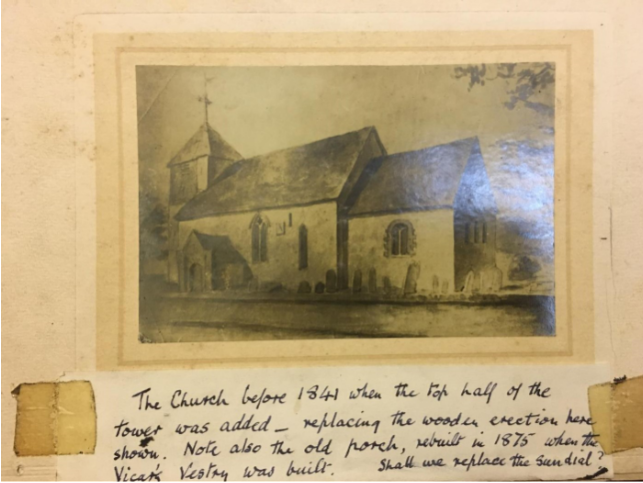 The Church before 1841 when the top half of the
tower was added — replacing the wooden erection here
shown. Note also the old porch, rebuilt in 1875 when the
Vicar's Vestry was built. Shall we replace the Sundial?